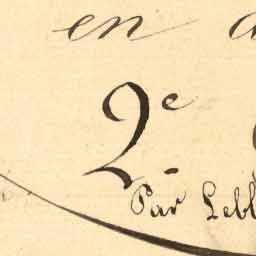 en
2e
Par Lebl